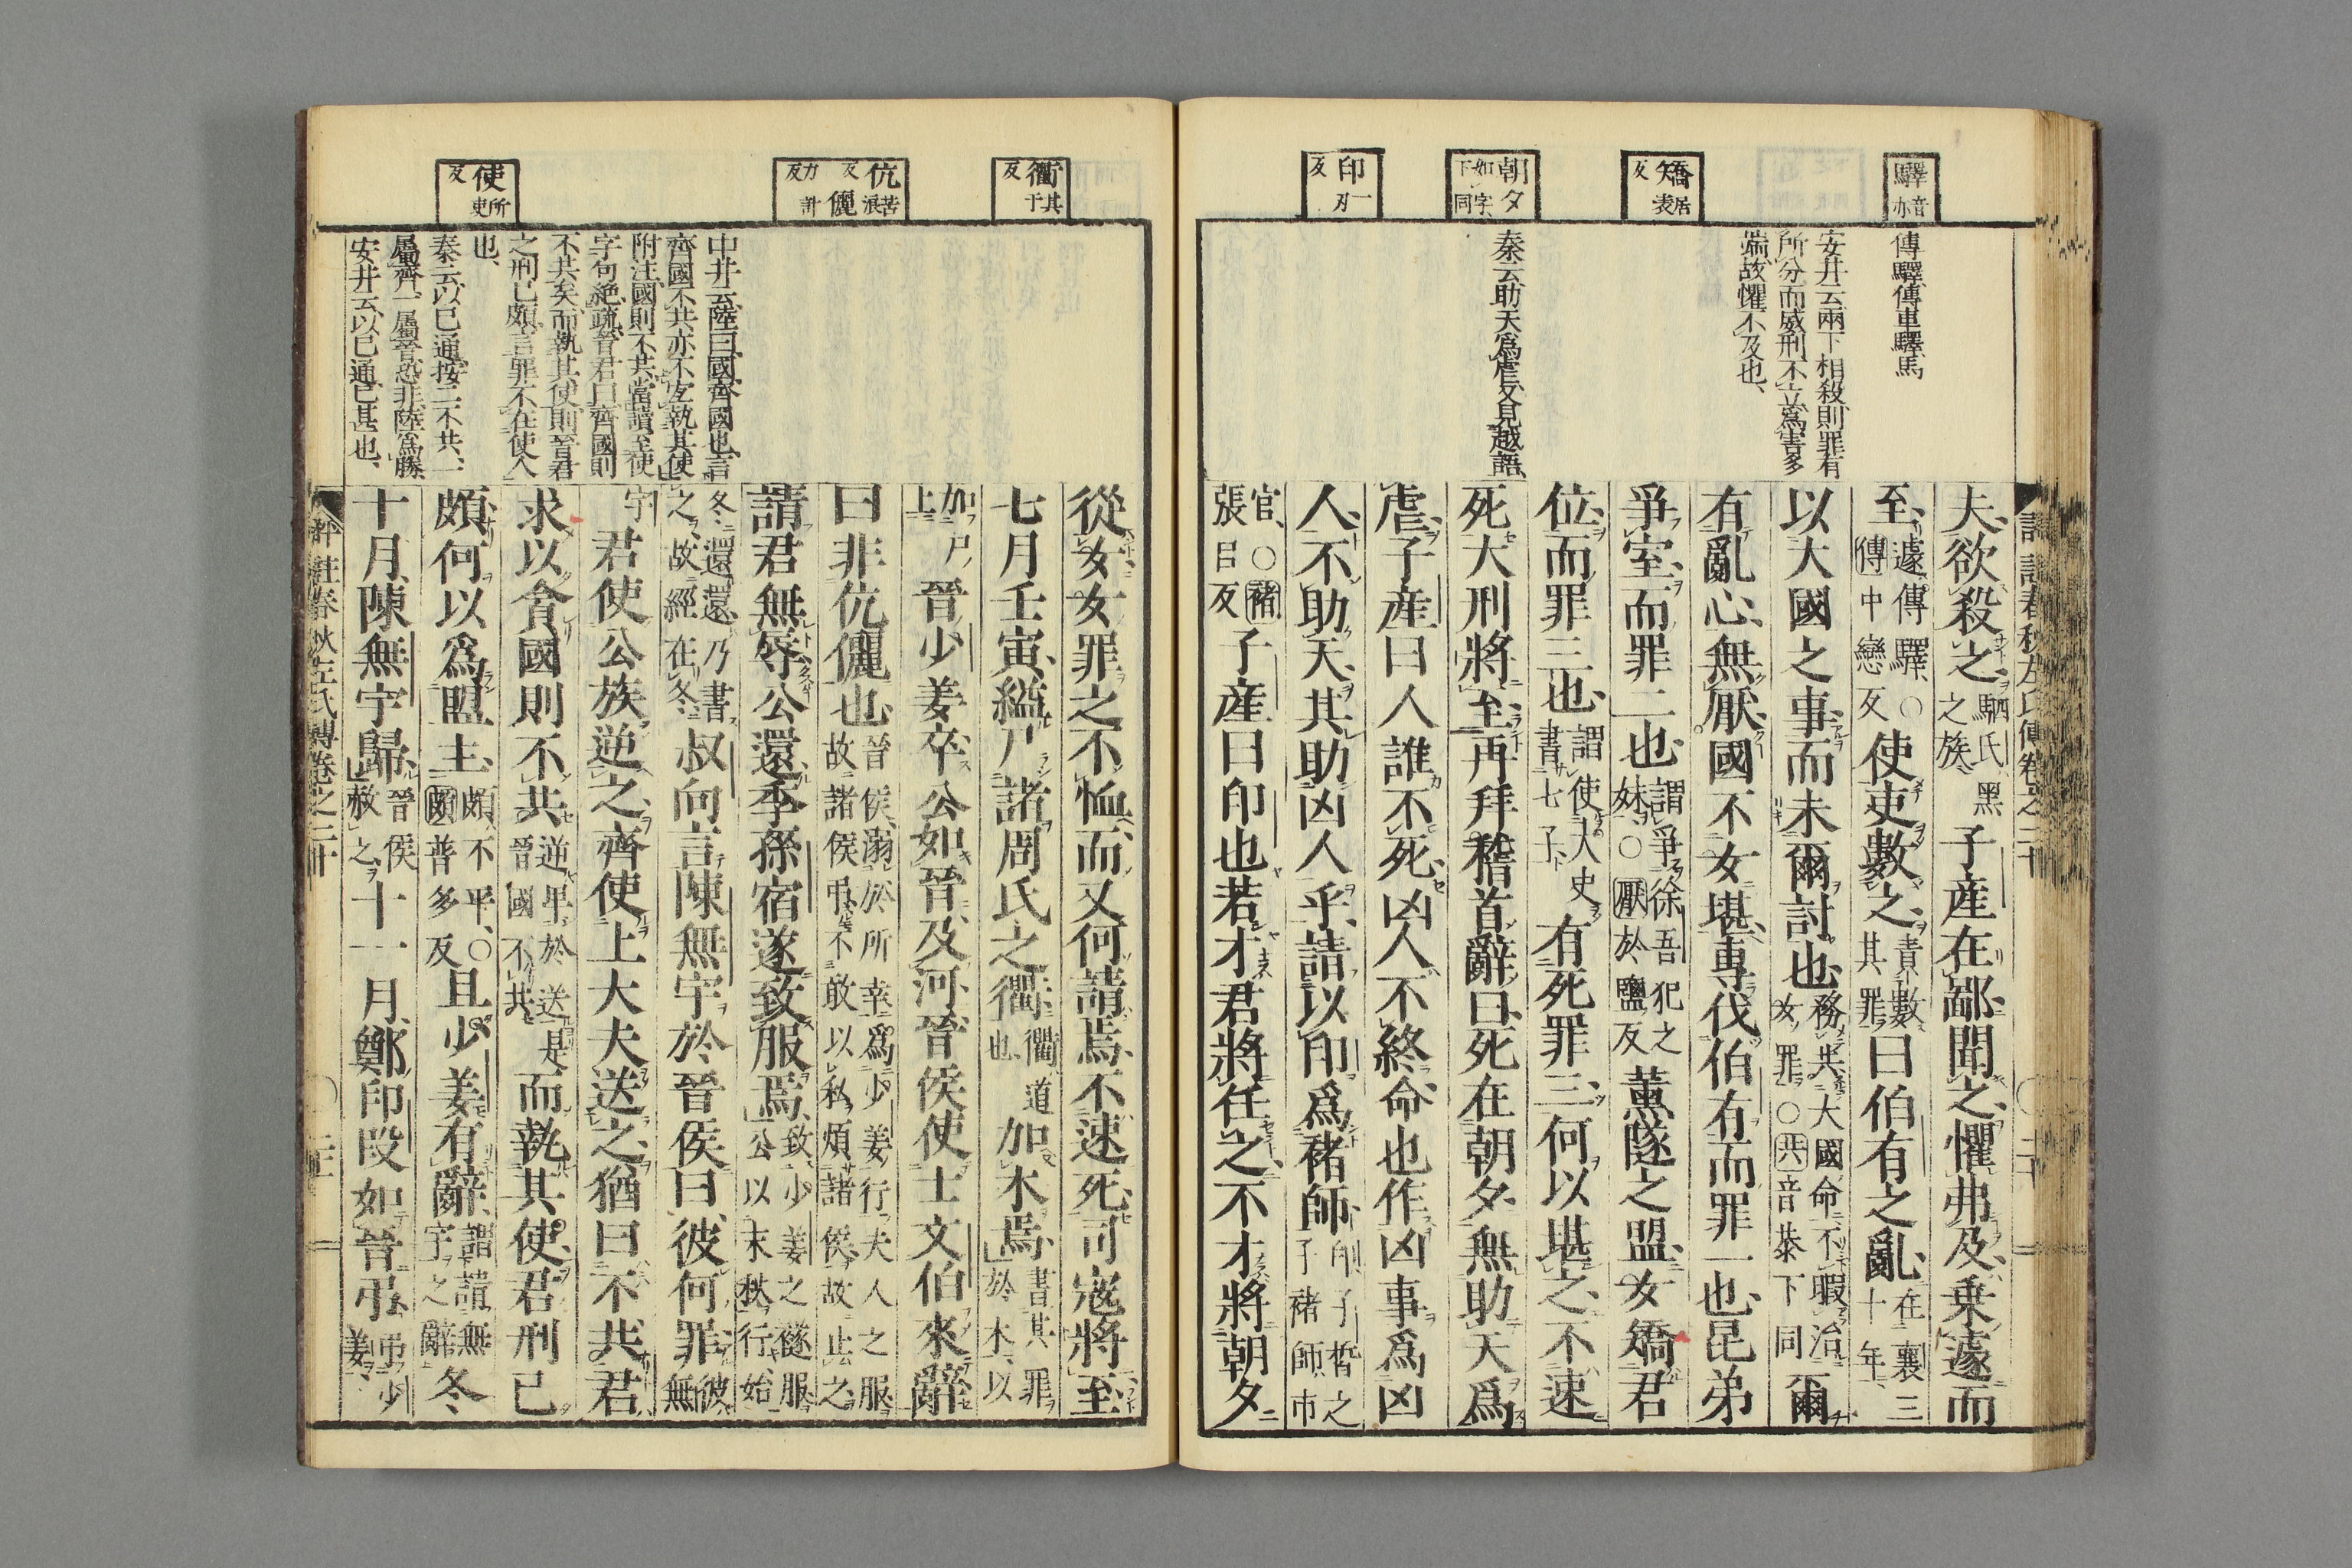 驛音亦
矯居表反
朝夕如字下同
印一刃反
傳驛傳車驛馬
安井云兩下相殺則罪有
所分而威刑不立爲害多
端故懼不及也
秦云助天爲虐又見越語
夫欲殺之駟氏黑之族子產在鄙聞之懼弗及乗遽而
至遽傳驛○傳中戀反使吏數之責數其罪曰伯有之亂在襄三十年
以大國之事而未爾討也務共大國命不暇治女罪○共音恭下同爾
有亂心無厭國不女堪專伐伯有而罪一也昆弟
爭室而罪二也謂爭徐吾犯之妹○厭於鹽反薰隧之盟女矯君
位而罪三也謂使大史書七子有死罪三何以堪之不速
死大刑將至再拜稽首辭曰死在朝夕無助天爲
虐子產曰人誰不死凶人不終命也作凶事爲凶
人不助天其助凶人乎請以印爲褚師印子晳之子褚師市
官○褚張呂反子產曰印也若才君將任之不才將朝夕
衢其于反
伉苦浪反儷力計反
使所吏反
中井云陸曰國齊國也言
齊國不共亦不宜執其使
附注國則不共當讀至使
字句絕疏晉君曰齊國則
不共矣而執其使則晉君
之刑已頗言罪不在使人
也
秦云以已通按二不共一
屬齊一屬晉恐非陸爲勝
安井云以已通已甚也
從女女罪之不恤而又何請焉不速死司寇將至
七月壬寅縊尸諸周氏之衢衢道也加木焉書其罪於木以
加尸上晉少姜卒公如晉及河晉侯使士文伯來辭
曰非伉儷也晉侯溺於所幸爲少姜行夫人之服故諸侯弔不敢以私煩諸侯故止之
請君無辱公還季孫宿遂致服焉致少姜之襚服公以末秋行始
冬還還乃書之故經在冬叔向言陳無宇於晉侯曰彼何罪彼無
宇君使公族逆之齊使上大夫送之猶曰不共君
求以貪國則不共逆卑於送是晉國不共而執其使君刑已
頗何以爲盟主頗不平○頗普多反且少姜有辭謂請無宇之辭冬
十月陳無宇歸晉侯赦之十一月鄭印段如晉弔弔少姜